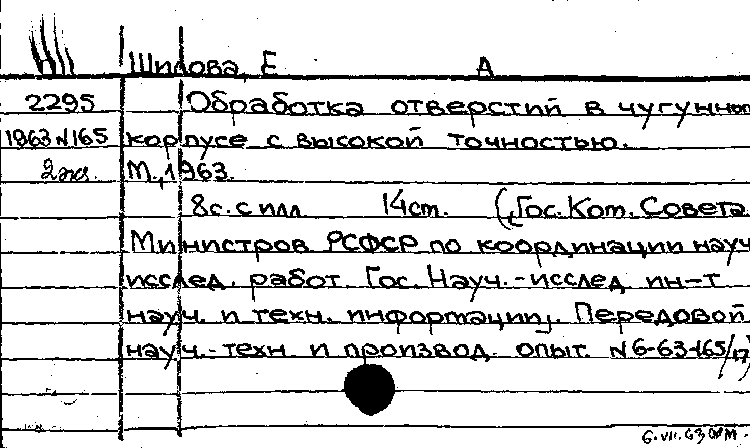 Шилова, Е А
2295 Обработка отверстий в чугунном
1963 N165 корпусе с высокой точностью.
2экз. М., 1963.
8с. с илл. 14см. (Гос. Ком. Совета
Министров РСФСР по координации науч
исслед. работ. Гос. Науч.-исслед. ин-т
науч. и техн. информации). Передовой
науч.-техн. и производ. опыт. N6-63-165/17)
6.VII.63